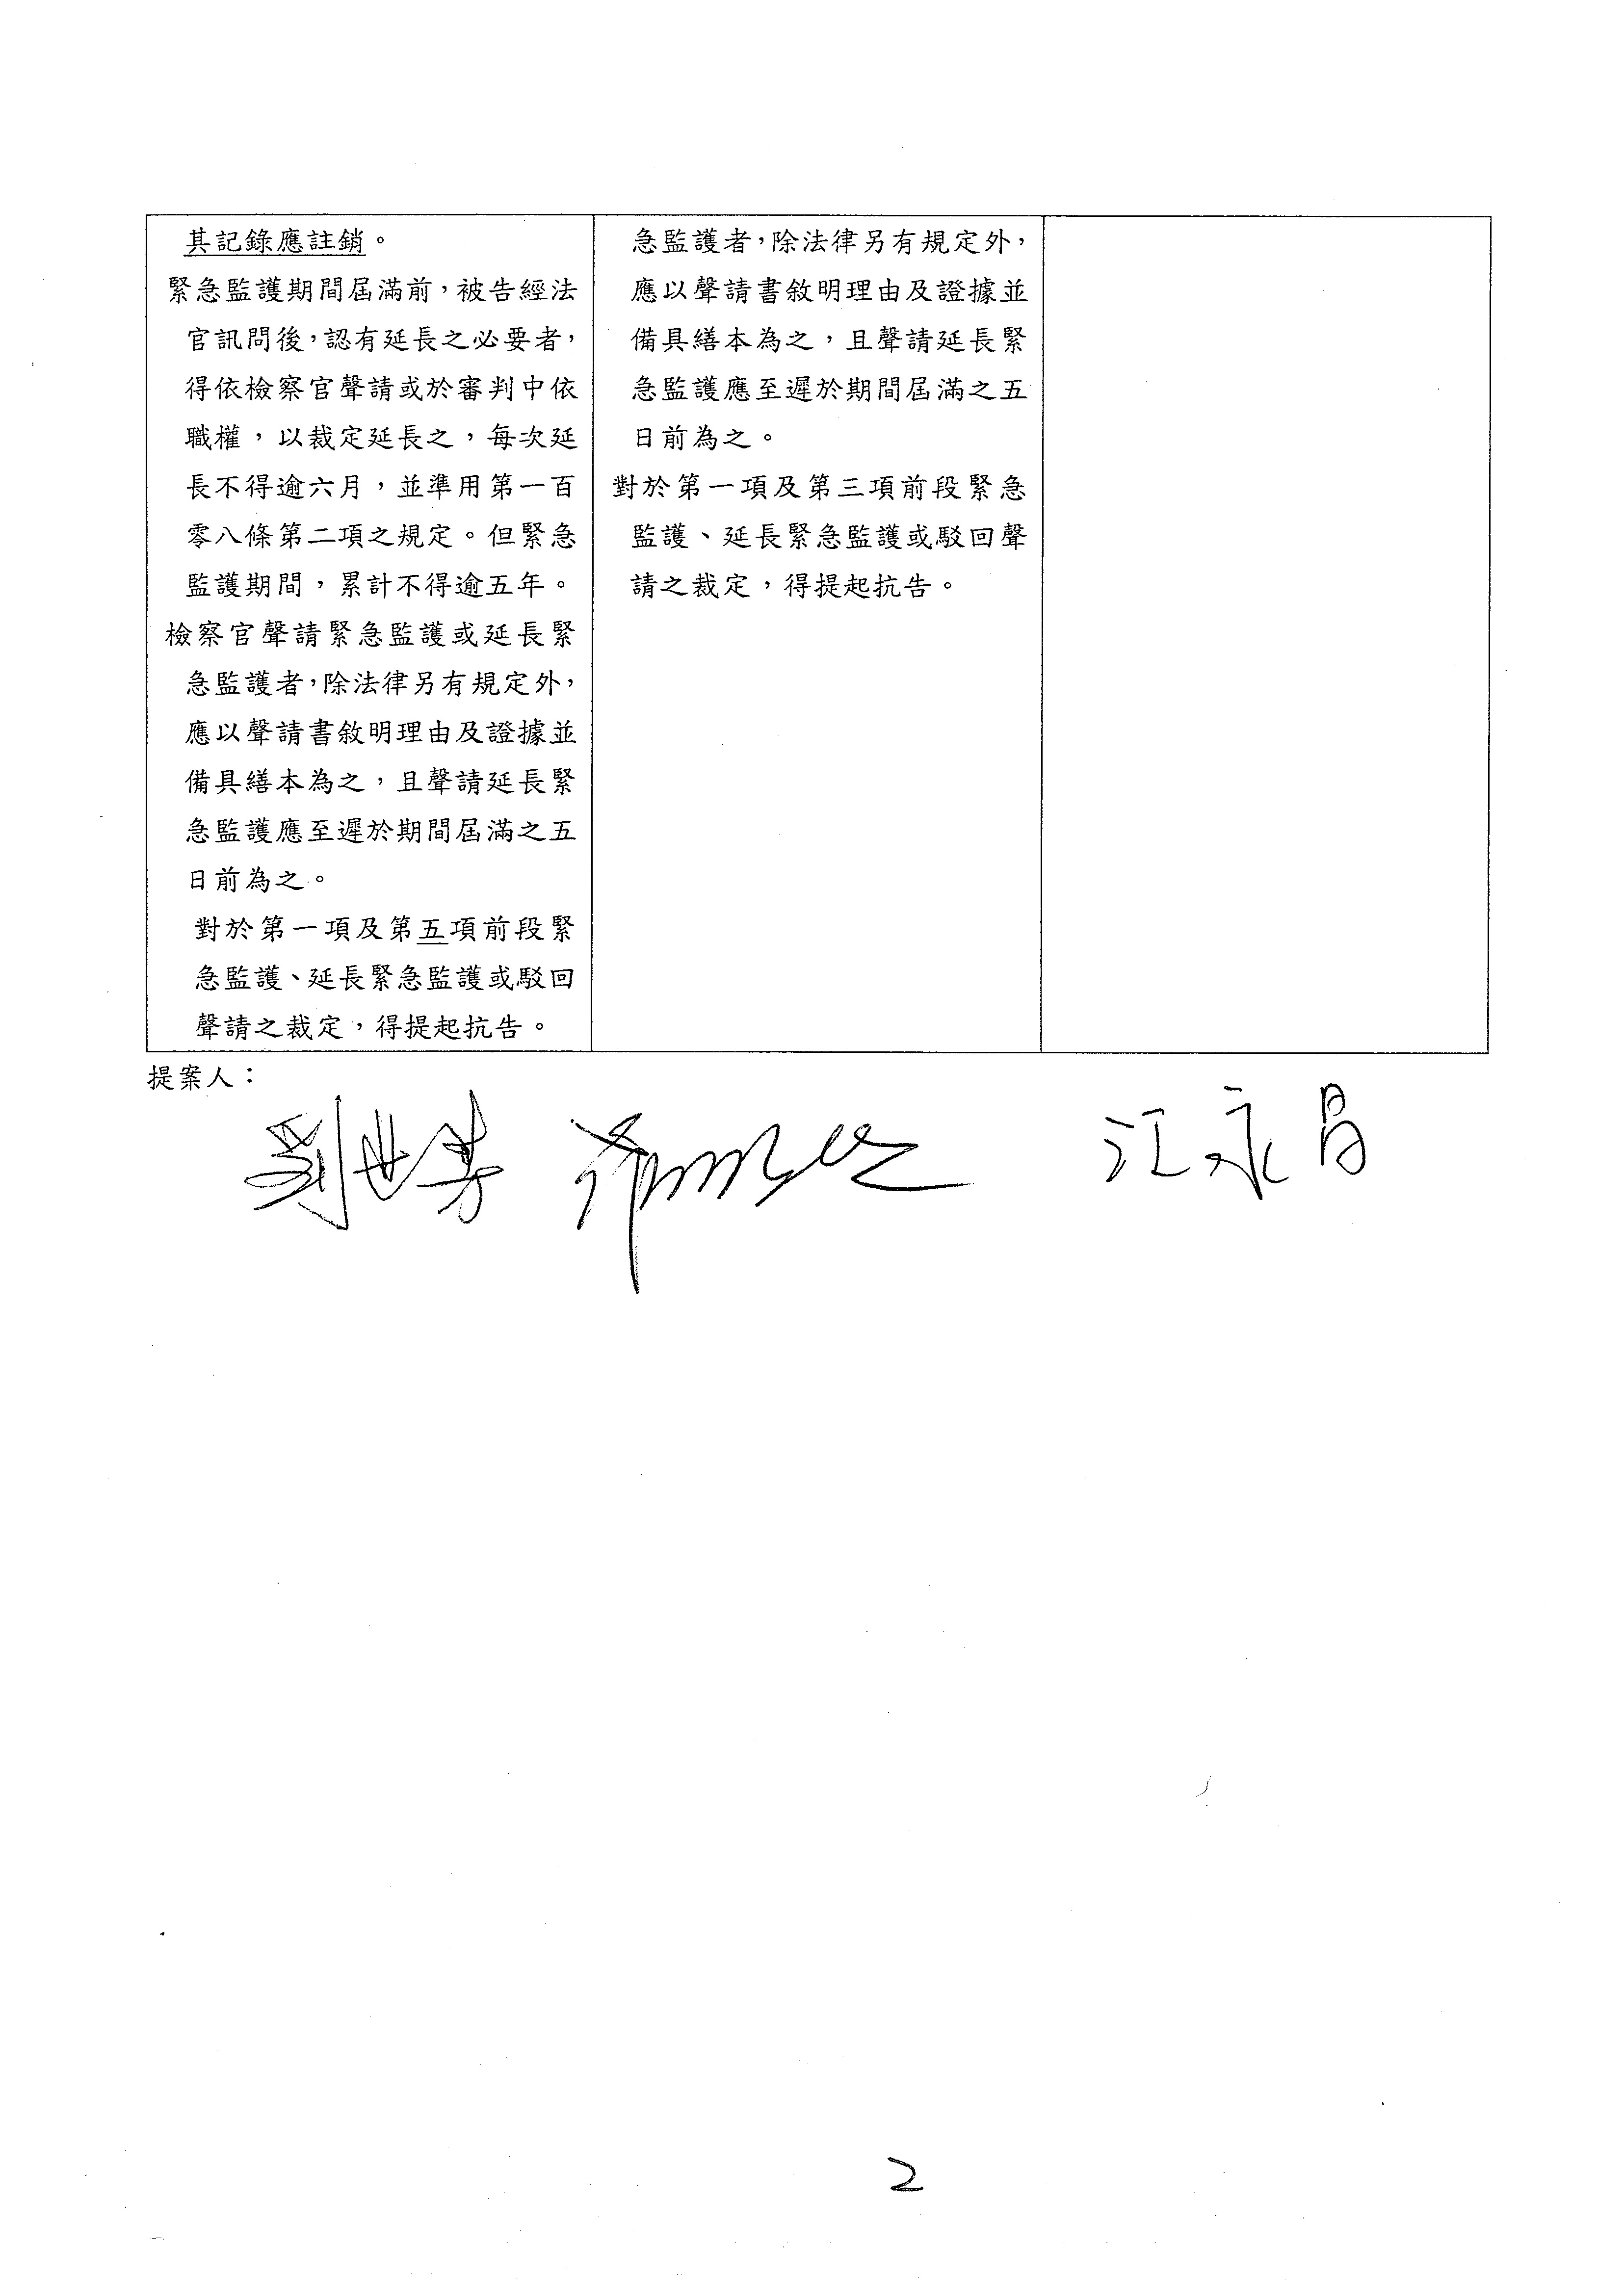 其記錄應註銷。
緊急監護期間屆滿前，被告經法
官訊問後，認有延長之必要者，
得依檢察官聲請或於審判中依
職權，以裁定延長之，每次延
長不得逾六月，並準用第一百
零八條第二項之規定。但緊急
監護期間，累計不得逾五年。
檢察官聲請緊急監護或延長緊
急監護者，除法律另有規定外，
應以聲請書敘明理由及證據並
備具繕本為之，且聲請延長緊
急監護應至遲於期間屆滿之五
日前為之。
對於第一項及第五項前段緊
急監護、延長緊急監護或駁回
聲請之裁定，得提起抗告。
急監護者，除法律另有規定外，
應以聲請書敘明理由及證據並
備具繕本為之，且聲請延長緊
急監護應至遲於期間屆滿之五
日前為之。
對於第一項及第三項前段緊急
監護、延長緊急監護或駁回聲
請之裁定，得提起抗告。
提案人：
劉世芳
江永昌
2